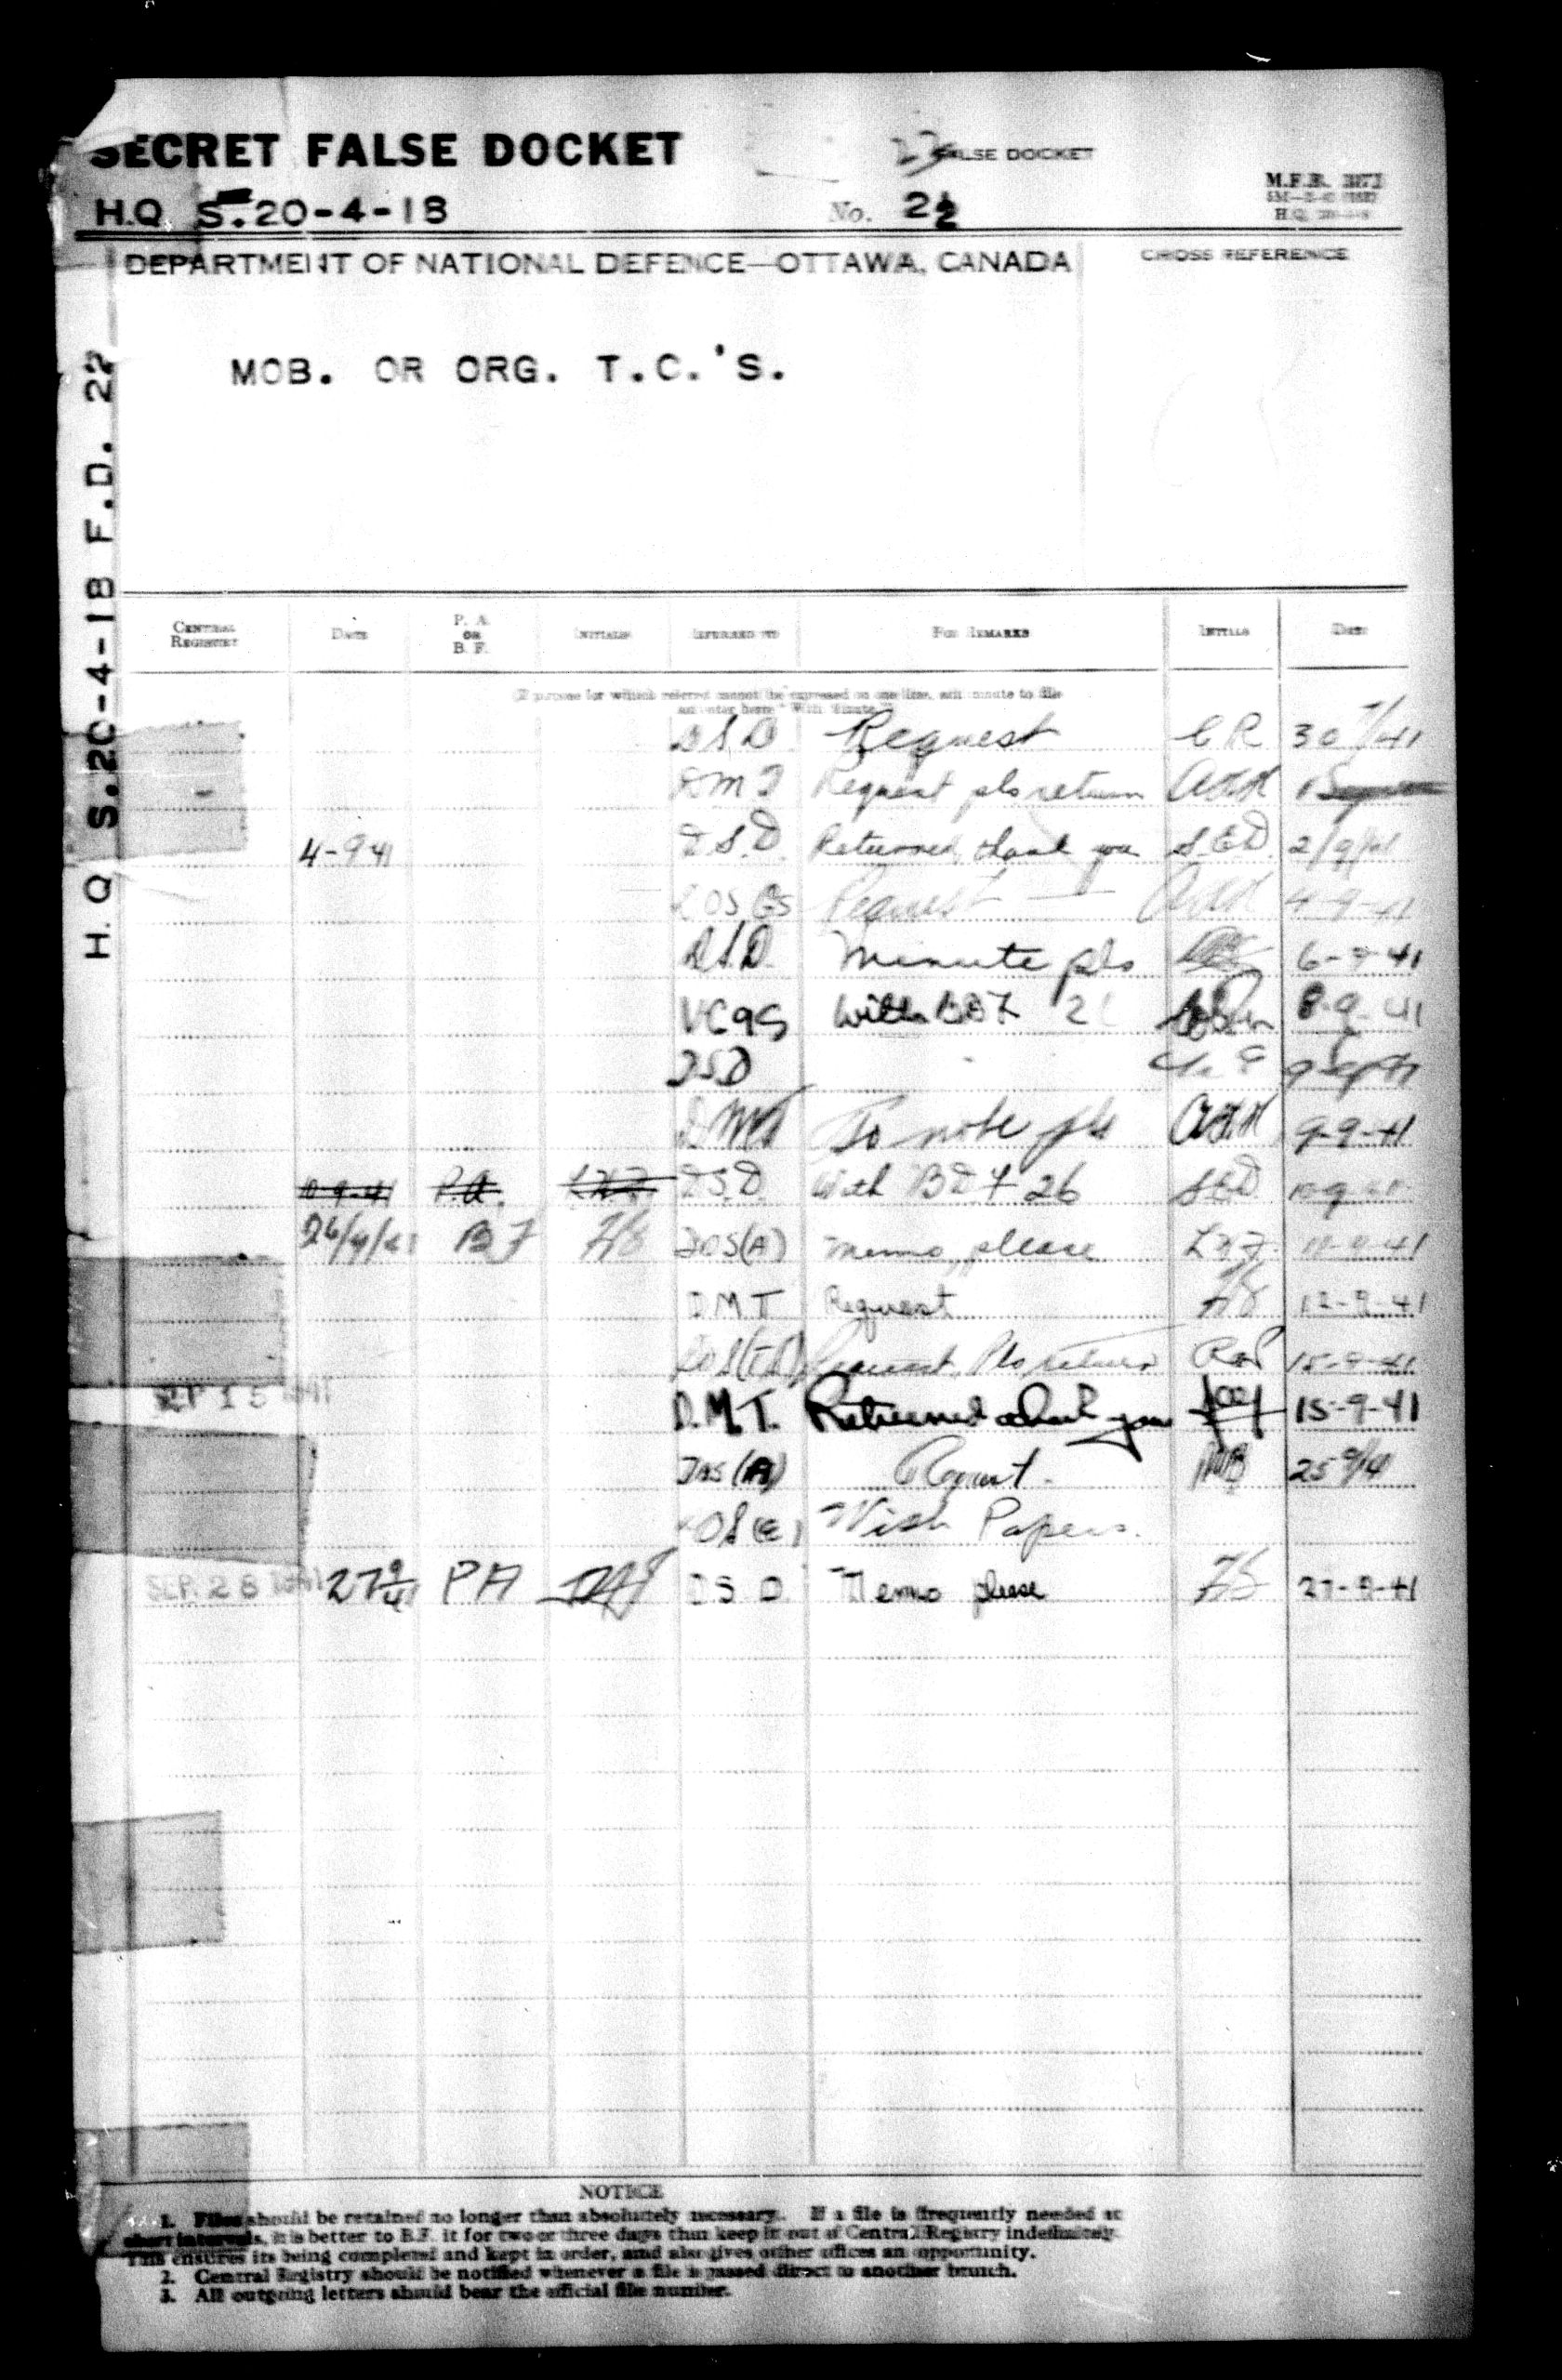 SECRET FALSE DOCKET
FALSE DOCKET
H.Q S.20-4-18
No. 22
M.F.B.
DEPARTMENT OF NATIONAL DEFENCE—OTTAWA, CANADA
CROSS REFERENCE
MOB. OR ORG. T.C.'S.
H.Q S.20-4-18 F.D. 22
CENTRAL REGISTRY DATE P. A. OR B. F. INITIALS REFERRED TO FOR REMARKS INITIALS DATE
(If purpose for which referred cannot be expressed on one line, add minute to file
and enter here "With Minute.")
DSD Request CR 30/7/41
DMT Request pls return
4-9-41 D.S.D. Returned, thank you S.E.D. 2/9/41
Request 4-9-41
DSD. Minute pls 6-9-41
VCGS With BDF 8-9-41
DSD 9 Sept 41
DMT To note pls 9-9-41
10-9-41 P.A. D.S.D. With BDF 26 SED
26/9/41 BF DOS(A) Memo, please 11-9-41
DMT Request 12-9-41
Request. Pls return 15-9-41
SEP 15 1941 D.M.T. Returned thank you 15-9-41
DOS(A) Request. 25 9/41
With Papers.
SEP. 26 1941 27 9/41 PA DSD Memo please 27-9-41
NOTICE
1. Files should be retained no longer than absolutely necessary. If a file is frequently needed at
short intervals, it is better to B.F. it for two or three days than keep it out of Central Registry indefinitely.
This ensures its being completed and kept in order, and also gives other offices an opportunity.
2. Central Registry should be notified whenever a file is passed direct to another branch.
3. All outgoing letters should bear the official file number.